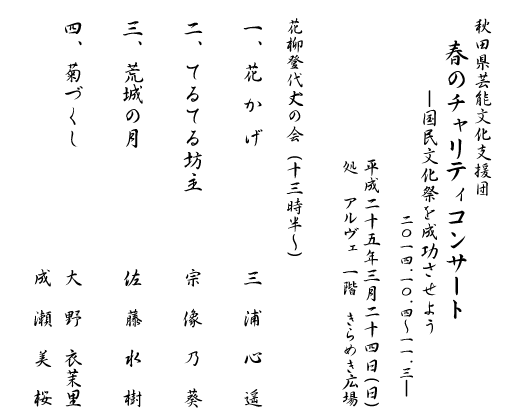 秋田県芸能文化支援団
春のチャリティコンサート
―国民文化祭を成功させよう
二〇一四.一〇.四～一一.三―
平成二十五年三月二十四日(日)
処 アルヴェ 一階 きらめき広場
花柳登代丈の会(十三時半～)
一、花かげ 三浦心遥
二、てるてる坊主 宗像乃葵
三、荒城の月 佐藤水樹
四、菊づくし 大野衣茉里
成瀬美桜